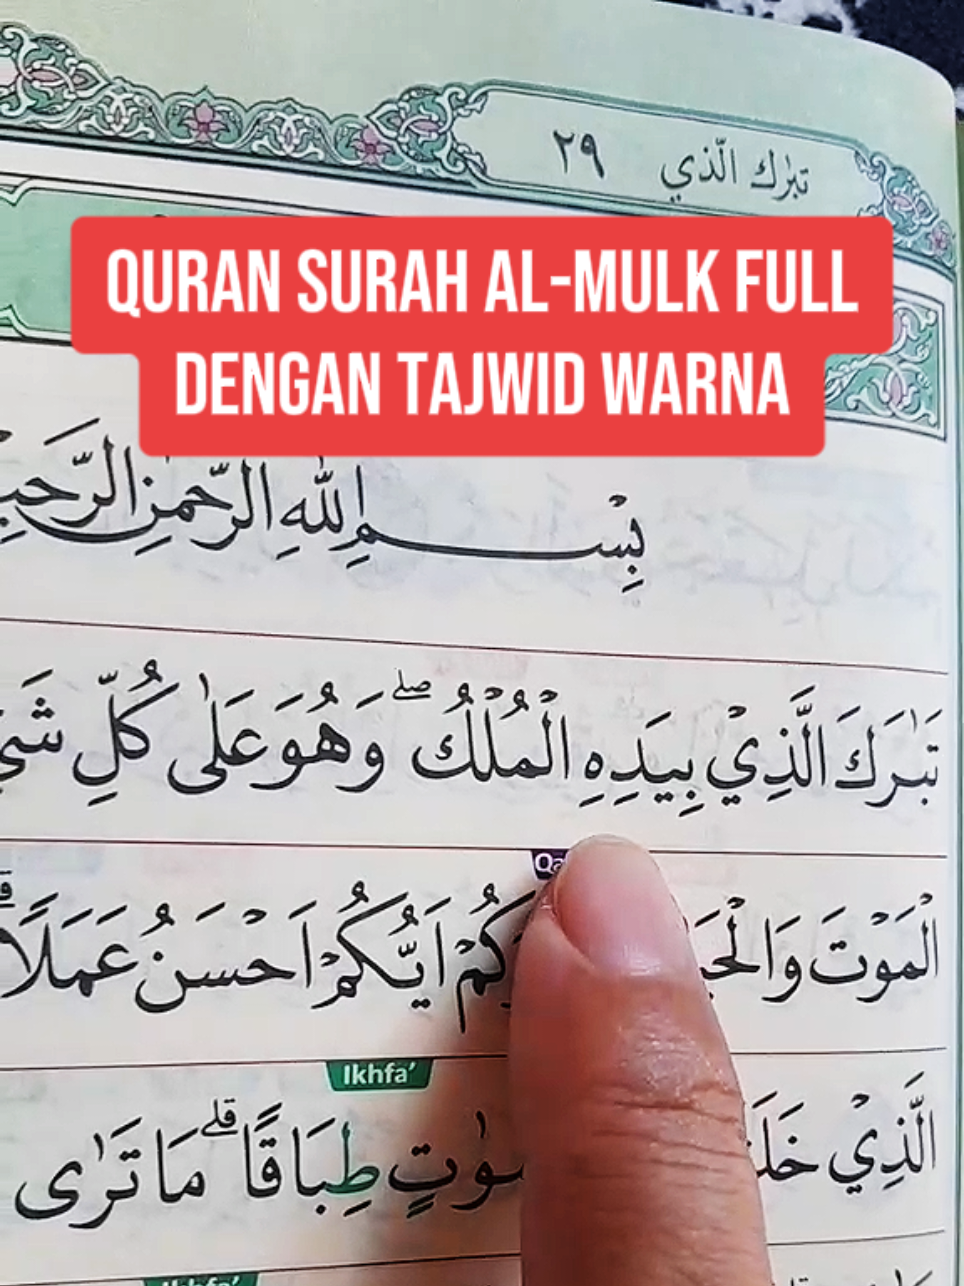 تبٰرك الّذي ٢٩
QURAN SURAH AL-MULK FULL
DENGAN TAJWID WARNA
بِسْــمِ اللّٰهِ الرَّحْمٰنِ
تَبٰرَكَ الَّذِيْ بِيَدِهِ الْمُلْكُ ۖ وَهُوَ عَلٰى كُلِّ
الْمَوْتَ اَيُّكُمْ اَحْسَنُ عَمَلًا
Ikhfa'
الَّذِيْ طِبَاقًا ۗ مَا تَرٰى